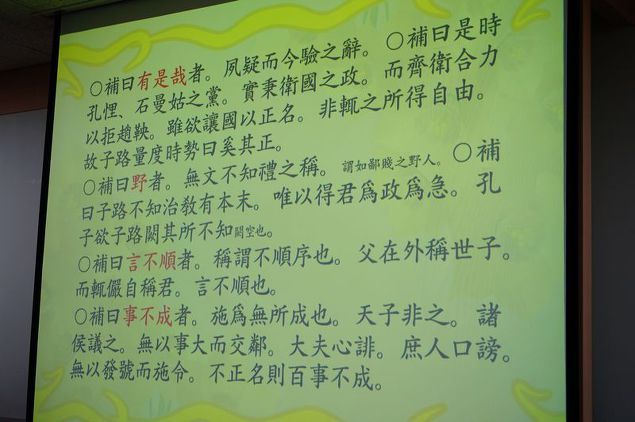 ○補曰有是哉者。夙疑而今驗之辭。○補曰是時
孔悝、石曼姑之黨。實秉衛國之政。而齊衛合力
以拒趙鞅。雖欲讓國以正名。非輒之所得自由。
故子路量度時勢曰奚其正。
○補曰野者。無文不知禮之稱。謂如鄙賤之野人。○補
曰子路不知治敎有本末。唯以得君爲政爲急。孔
子欲子路闕其所不知闕空也。
○補曰言不順者。稱謂不順序也。父在外稱世子。
而輒儼自稱君。言不順也。
○補曰事不成者。施爲無所成也。天子非之。諸
侯議之。無以事大而交鄰。大夫心誹。庶人口謗。
無以發號而施令。不正名則百事不成。